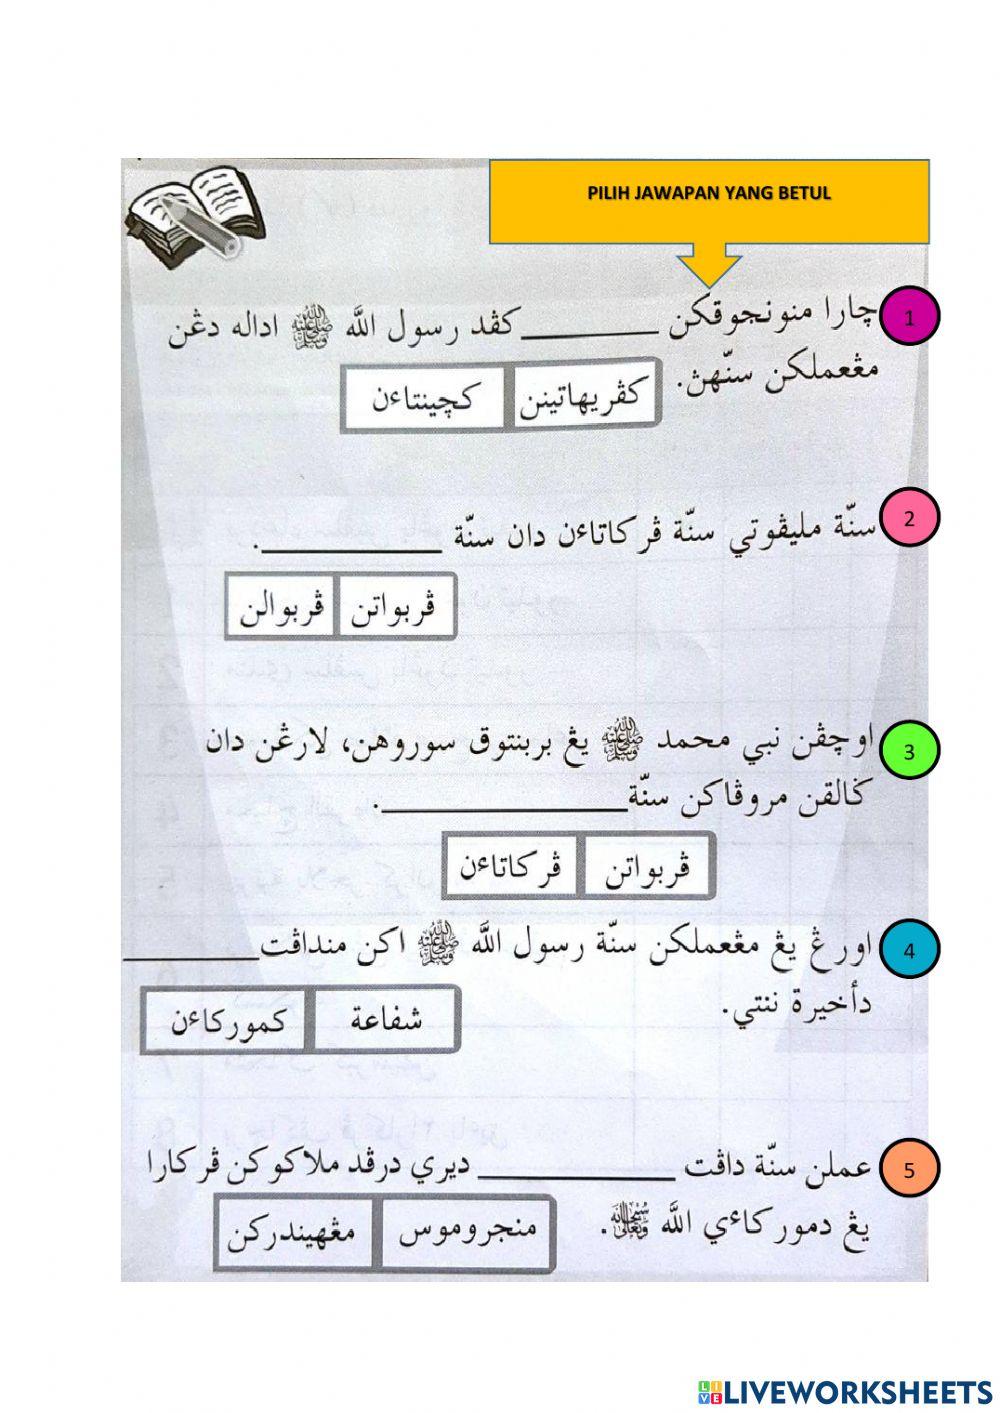 PILIH JAWAPAN YANG BETUL
1
چارا منونجوقكن ________ كڤد رسول الله ﷺ اداله دڠن
مڠعملكن سنّهن.
كڤريهاتينن
كچينتاءن
2
سنّة مليڤوتي سنّة ڤركاتاءن دان سنّة ________.
ڤربواتن
ڤربوالن
3
اوچڤن نبي محمد ﷺ يڠ بربنتوق سوروهن، لارڠن دان
ݢالقن مروڤاكن سنّة________.
ڤربواتن
ڤركاتاءن
4
اورڠ يڠ مڠعملكن سنّة رسول الله ﷺ اكن منداڤت________
دأخيرة ننتي.
شفاعة
كموركاءن
5
عملن سنّة داڤت ________ ديري درڤد ملاكوكن ڤركارا
يڠ دموركاءي الله سبحانه وتعالى.
منجروموس
مڠهيندركن
LIVEWORKSHEETS